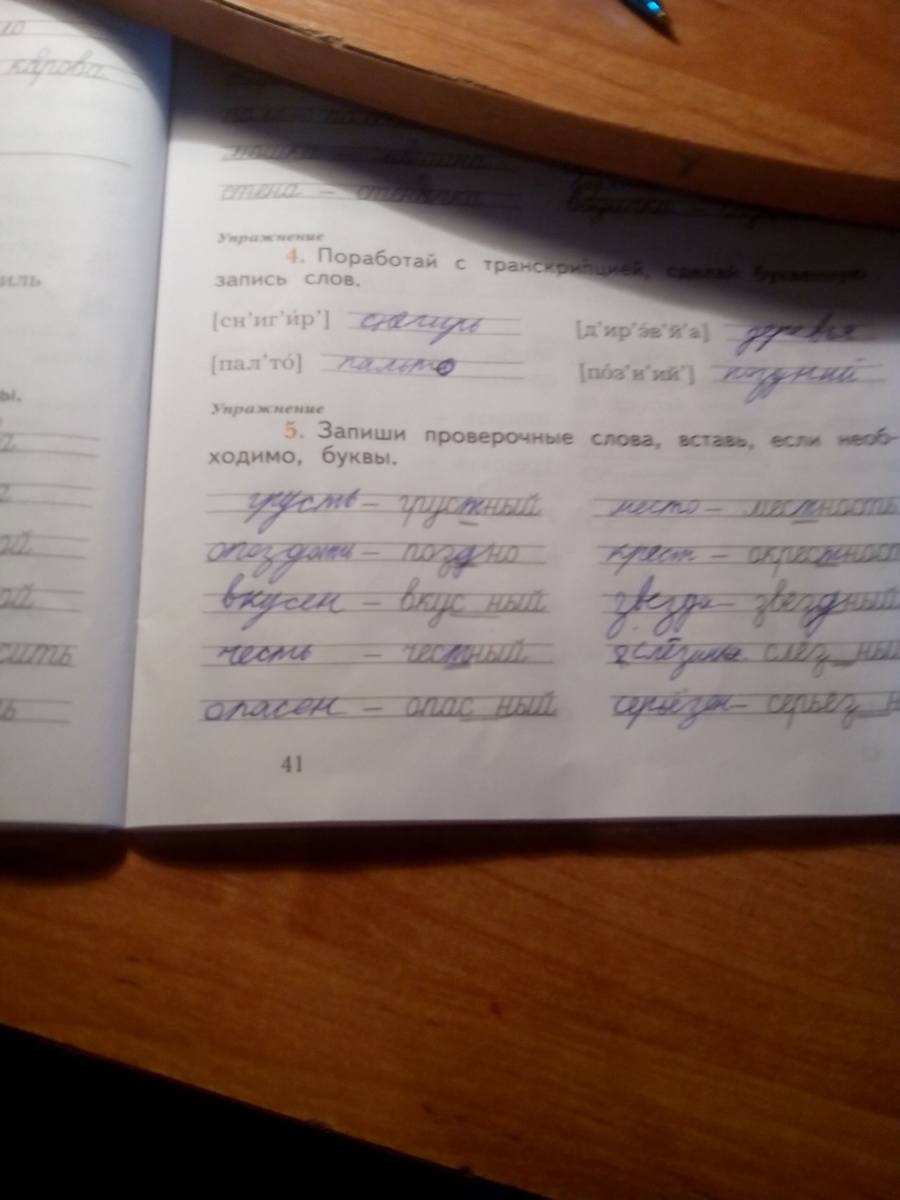 карова
стена –
Упражнение
4. Поработай с транскрипцией, сделай буквенную
запись слов.
[сн'иг'и́р'] снегирь [д'ир'э́в'й'а] деревья
[пал'то́] пальто [по́з'н'ий'] поздний
Упражнение
5. Запиши проверочные слова, вставь, если необ-
ходимо, буквы.
грусть – грустный место – местность
опоздать – поздно крест – окрестност
вкусен – вкус_ный звезда – звездный
честь – честный слёзинка слёз_ны
опасен – опас_ный серьёзен – серьёз_н
41
иль
ы.
ой
ой
сить
ь